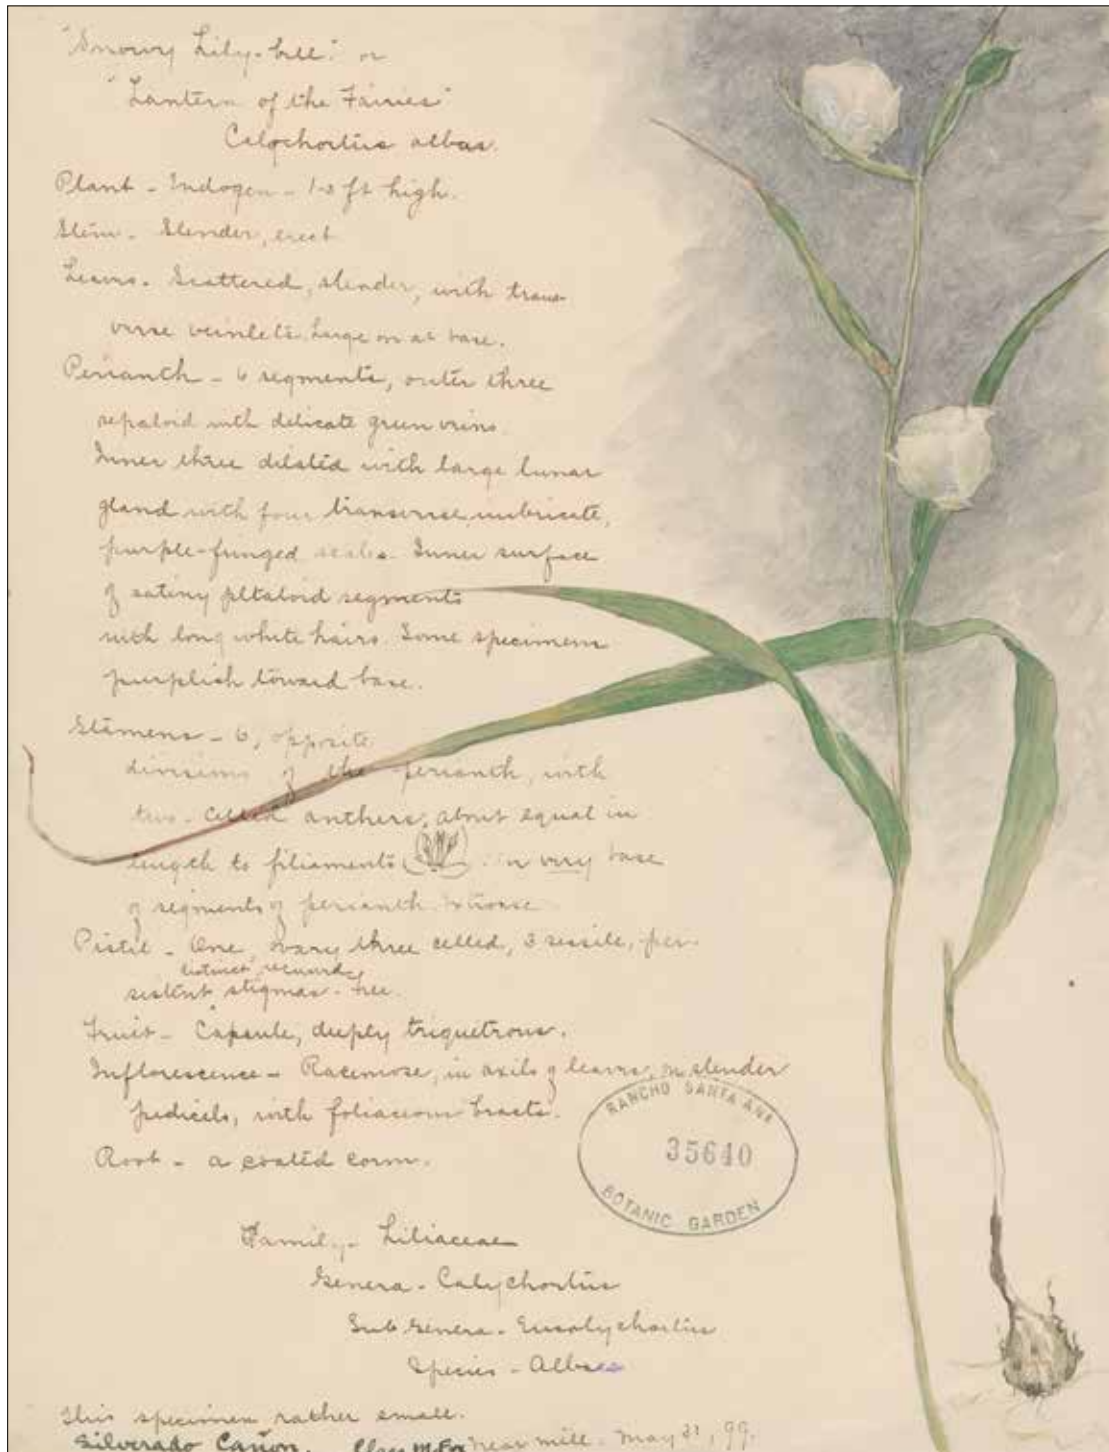 "Snowy Lily-bell" or
"Lantern of the Fairies"
Calochortus albus.
Plant - Indogen - 1-2 ft high.
Stem - Slender, erect
Leaves - Scattered, slender, with trans-
verse veinlets. Large on at base.
Perianth - 6 segments, outer three
sepaloid with delicate green veins.
Inner three dilated with large lunar
gland with four transverse imbricate,
purple-fringed scales. Inner surface
of satiny petaloid segments
with long white hairs. Some specimens
purplish toward base.
Stamens - 6, opposite
divisions of the perianth, with
two-celled anthers, about equal in
length to filaments. on very base
of segments of perianth
Pistil - One, ovary three celled, 3 sessile, per-
distinct, recurved
sistent stigmas - free.
Fruit - Capsule, deeply triquetrous.
Inflorescence - Racemose, in axils of leaves, on slender
pedicels, with foliaceous bracts.
Root - a coated corm.
RANCHO SANTA ANA
35640
BOTANIC GARDEN
Family - Liliaceae
Genera - Calychortus
Sub Genera - Eucalychortus
Species - Albus
This specimen rather small.
Silverado Cañon. Fox near mill - May 31, 99.